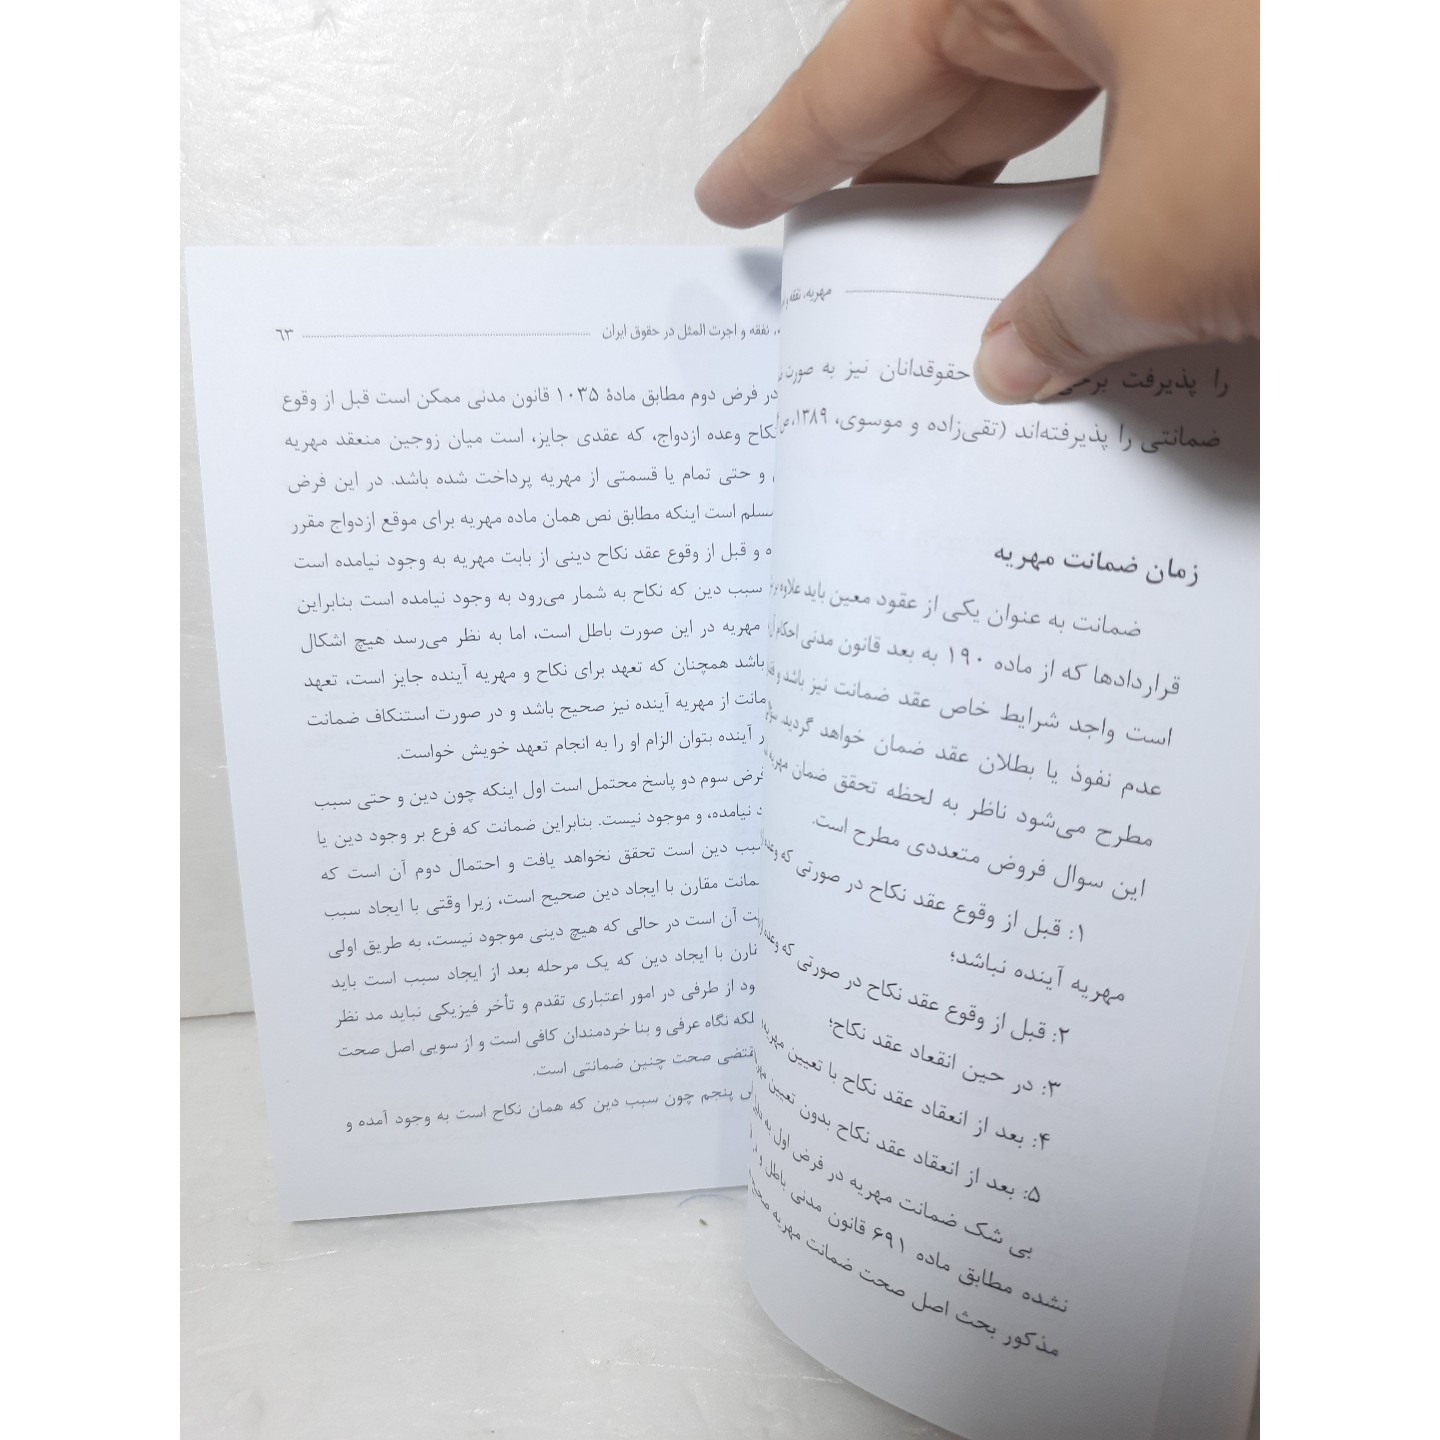 مهریه، نفقه و
را پذیرفت حقوقدانان نیز به صورت
ضمانتی را پذیرفته‌اند (تقی‌زاده و موسوی، ۱۳۸۹، ص
زمان ضمانت مهریه
ضمانت به عنوان یکی از عقود معین باید علاوه بر
قراردادها که از ماده ۱۹۰ به بعد قانون مدنی احکام آن
است واجد شرایط خاص عقد ضمانت نیز باشد و
عدم نفوذ یا بطلان عقد ضمان خواهد گردید.
مطرح می‌شود ناظر به لحظه تحقق ضمان مهریه
این سوال فروض متعددی مطرح است.
۱: قبل از وقوع عقد نکاح در صورتی که وعده
مهریه آینده نباشد؛
۲: قبل از وقوع عقد نکاح در صورتی که وعده
۳: در حین انعقاد عقد نکاح؛
۴: بعد از انعقاد عقد نکاح با تعیین مهریه
۵: بعد از انعقاد عقد نکاح بدون تعیین
بی شک ضمانت مهریه در فرض اول به
نشده مطابق ماده ۶۹۱ قانون مدنی باطل و
مذکور بحث اصل صحت ضمانت مهریه
نفقه و اجرت المثل در حقوق ایران ۶۳
در فرض دوم مطابق مادهٔ ۱۰۳۵ قانون مدنی ممکن است قبل از وقوع
وعده ازدواج، که عقدی جایز، است میان زوجین منعقد مهریه
و حتی تمام یا قسمتی از مهریه پرداخت شده باشد. در این فرض
است اینکه مطابق نص همان ماده مهریه برای موقع ازدواج مقرر
و قبل از وقوع عقد نکاح دینی از بابت مهریه به وجود نیامده است
سبب دین که نکاح به شمار می‌رود به وجود نیامده است بنابراین
مهریه در این صورت باطل است، اما به نظر می‌رسد هیچ اشکال
باشد همچنان که تعهد برای نکاح و مهریه آینده جایز است، تعهد
از مهریه آینده نیز صحیح باشد و در صورت استنکاف ضمانت
آینده بتوان الزام او را به انجام تعهد خویش خواست.
فرض سوم دو پاسخ محتمل است اول اینکه چون دین و حتی سبب
نیامده، و موجود نیست. بنابراین ضمانت که فرع بر وجود دین یا
سبب دین است تحقق نخواهد یافت و احتمال دوم آن است که
مقارن با ایجاد دین صحیح است، زیرا وقتی با ایجاد سبب
آن است در حالی که هیچ دینی موجود نیست، به طریق اولی
با ایجاد دین که یک مرحله بعد از ایجاد سبب است باید
از طرفی در امور اعتباری تقدم و تأخر فیزیکی نباید مد نظر
نگاه عرفی و بنا خردمندان کافی است و از سویی اصل صحت
صحت چنین ضمانتی است.
پنجم چون سبب دین که همان نکاح است به وجود آمده و